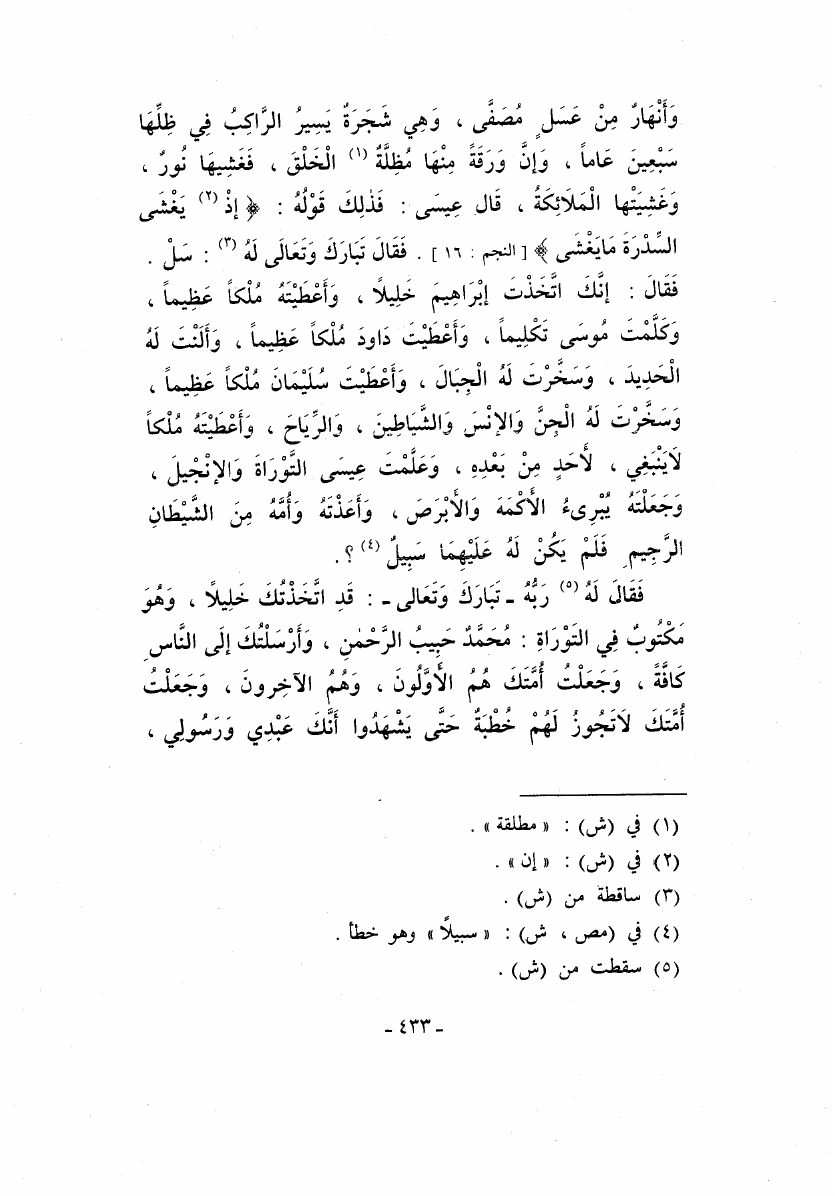 وَأَنْهَارٌ مِنْ عَسَلٍ مُصَفَّى ، وَهِيَ شَجَرَةٌ يَسِيرُ الرَّاكِبُ فِي ظِلِّهَا
سَبْعِينَ عَاماً ، وَإِنَّ وَرَقَةً مِنْهَا مُظِلَّةٌ (١) الْخَلْقَ ، فَغَشِيَهَا نُورٌ ،
وَغَشِيَتْهَا الْمَلَائِكَةُ ، قَال عِيسَى : فَذٰلِكَ قَوْلُهُ : ﴿ إِذْ (٢) يَغْشَى
السِّدْرَةَ مَايَغْشَى ﴾ [ النجم : ١٦ ] . فَقَالَ تَبَارَكَ وَتَعَالَى لَهُ (٣) : سَلْ .
فَقَالَ : إِنَّكَ اتَّخَذْتَ إِبْرَاهِيمَ خَلِيلاً ، وَأَعْطَيْتَهُ مُلْكاً عَظِيماً ،
وَكَلَّمْتَ مُوسَى تَكْلِيماً ، وَأَعْطَيْتَ دَاودَ مُلْكاً عَظِيماً ، وَأَلَنْتَ لَهُ
الْحَدِيدَ ، وَسَخَّرْتَ لَهُ الْجِبَالَ ، وَأَعْطَيْتَ سُلَيْمَانَ مُلْكاً عَظِيماً ،
وَسَخَّرْتَ لَهُ الْجِنَّ وَالإِنْسَ وَالشَّيَاطِينَ ، وَالرِّيَاحَ ، وَأَعْطَيْتَهُ مُلْكاً
لاَيَنْبَغِي ، لأَحَدٍ مِنْ بَعْدِهِ ، وَعَلَّمْتَ عِيسَى التَّوْرَاةَ وَالإِنْجِيلَ ،
وَجَعَلْتَهُ يُبْرِىءُ الأَكْمَهَ وَالأَبْرَصَ ، وَأَعَذْتَهُ وَأُمَّهُ مِنَ الشَّيْطَانِ
الرَّجِيمِ فَلَمْ يَكُنْ لَهُ عَلَيْهِمَا سَبِيلٌ (٤) ؟ .
فَقَالَ لَهُ (٥) رَبُّهُ ـ تَبَارَكَ وَتَعَالَى ـ : قَدِ اتَّخَذْتُكَ خَلِيلاً ، وَهُوَ
مَكْتُوبٌ فِي التَّوْرَاةِ : مُحَمَّدٌ حَبِيبُ الرَّحْمٰنِ ، وَأَرْسَلْتُكَ إِلَى النَّاسِ
كَافَّةً ، وَجَعَلْتُ أُمَّتَكَ هُمُ الأَوَّلُونَ ، وَهُمُ الآخِرونَ ، وَجَعَلْتُ
أُمَّتَكَ لاَتَجُوزُ لَهُمْ خُطْبَةٌ حَتَّى يَشْهَدُوا أَنَّكَ عَبْدِي وَرَسُولِي ،
(١) في (ش) : « مطلقة » .
(٢) في (ش) : « إن » .
(٣) ساقطة من (ش) .
(٤) في (مص ، ش) : « سبيلاً » وهو خطأ .
(٥) سقطت من (ش) .
- ٤٣٣ -